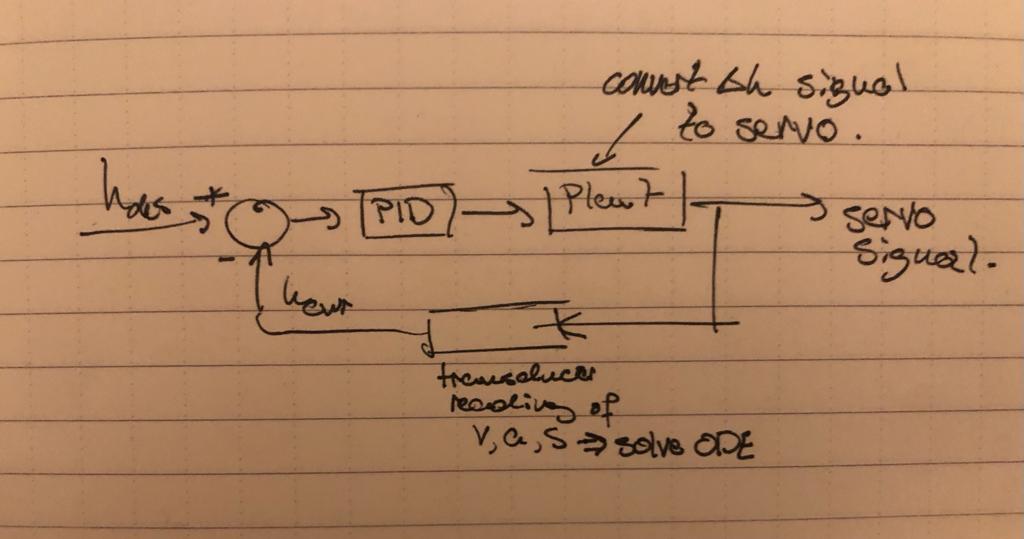 convert Δh signal
to servo.
hdes
+
PID
Plant
servo
signal.
-
hcurr
transducer
reading of
v, a, s ⇒ solve ODE